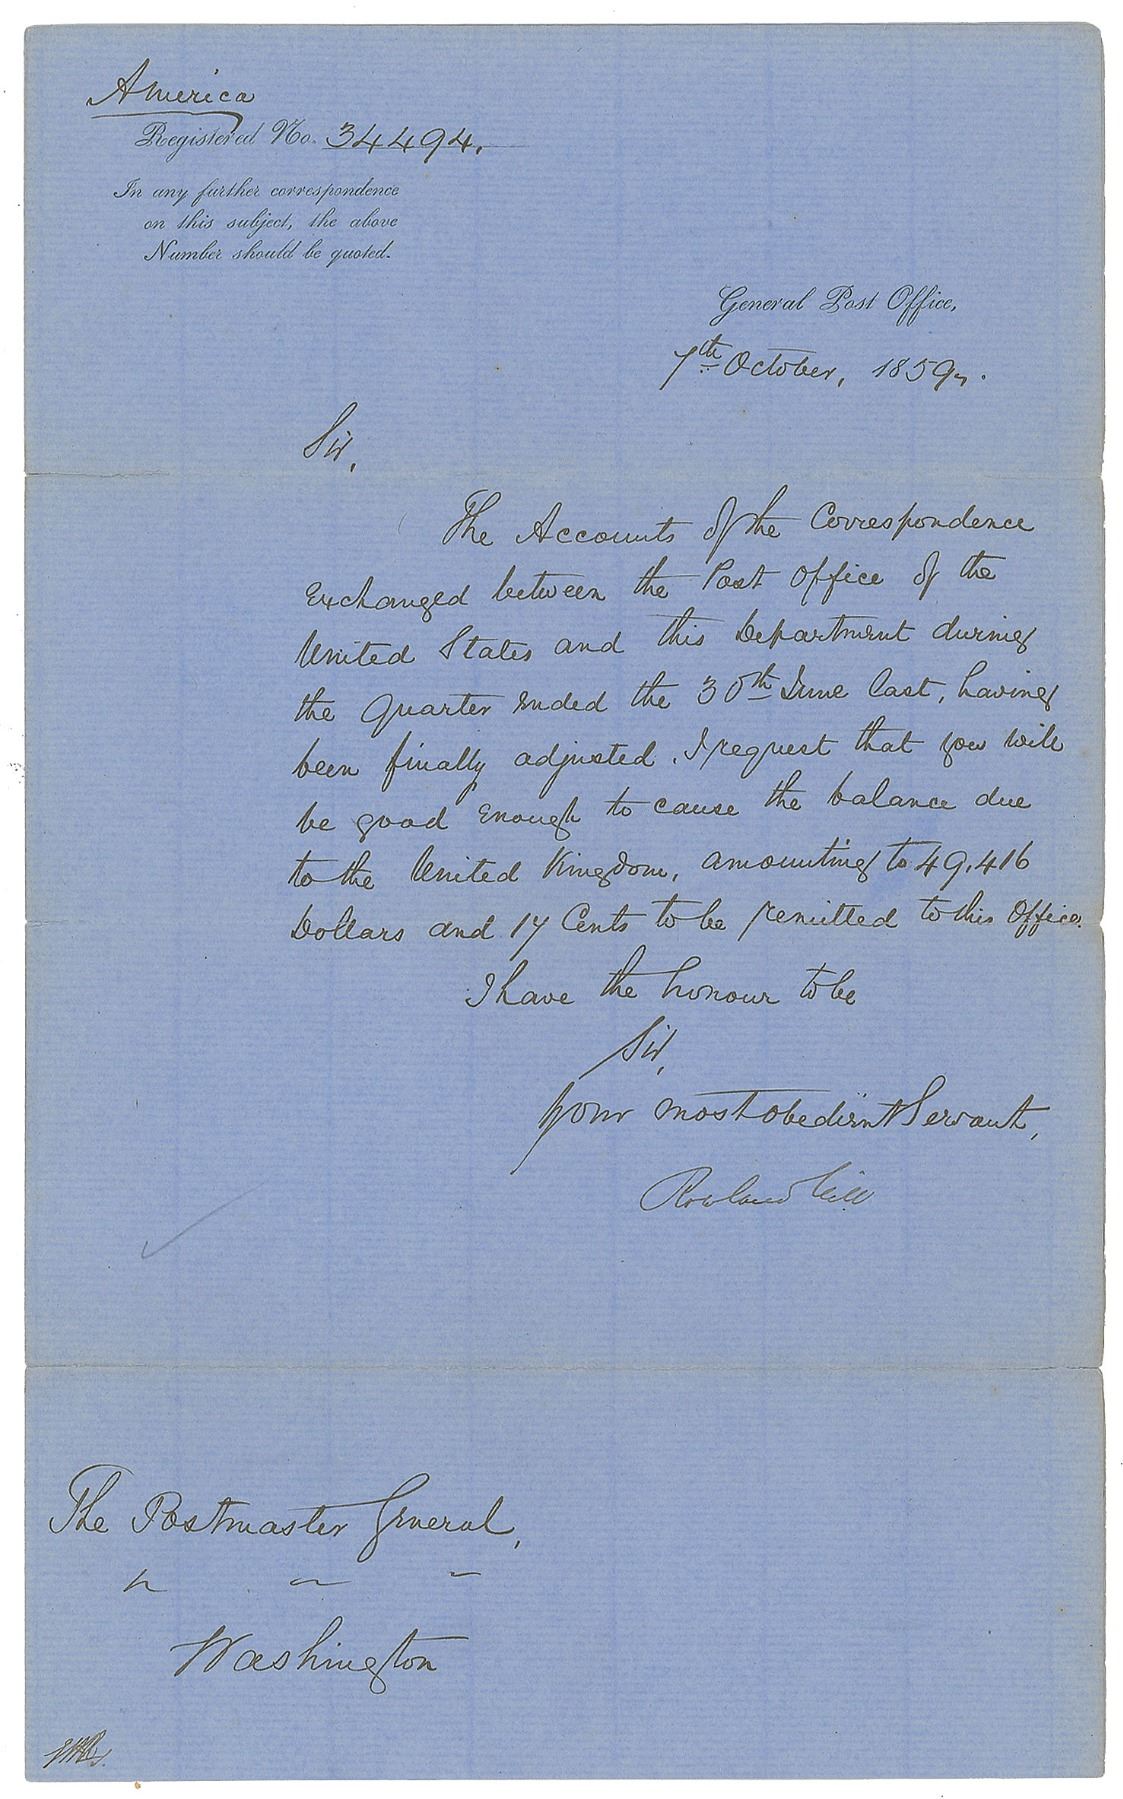 America
Registered No. 34494.
In any further correspondence
on this subject, the above
Number should be quoted.
General Post Office,
7th October, 1859.
Sir,
The Accounts of the Correspondence
Exchanged between the Post Office of the
United States and this Department during
the Quarter ended the 30th June last, having
been finally adjusted. I request that you will
be good enough to cause the balance due
to the United Kingdom, amounting to 49,416
Dollars and 17 Cents to be remitted to this Office.
I have the honour to be
Sir,
your most obedient Servant,
Rowland Hill
The Postmaster General,
Washington